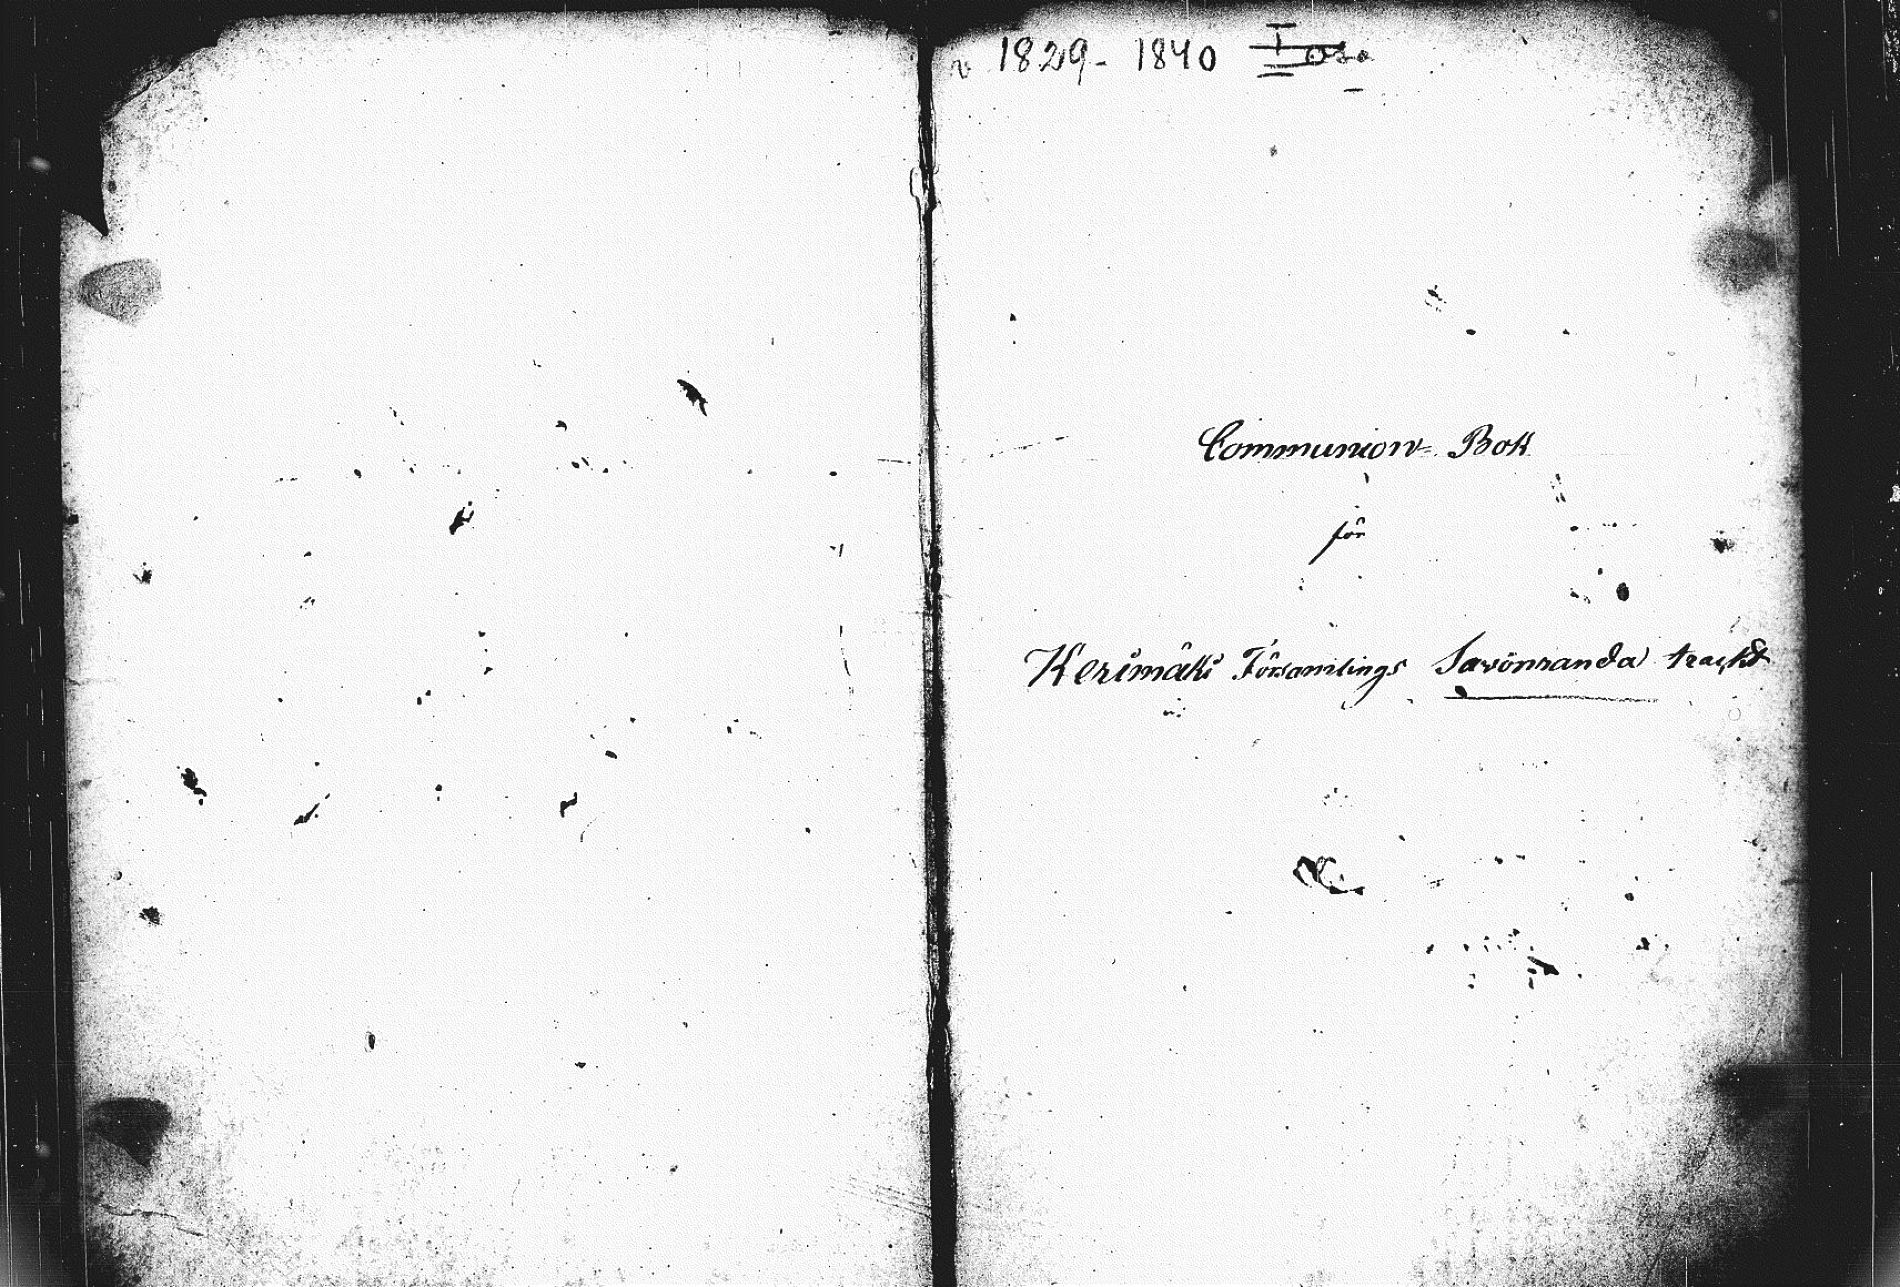 v 1829-1840 I os.
Communion-Bok
för
Kerimäki Församlings Savonranda trackt